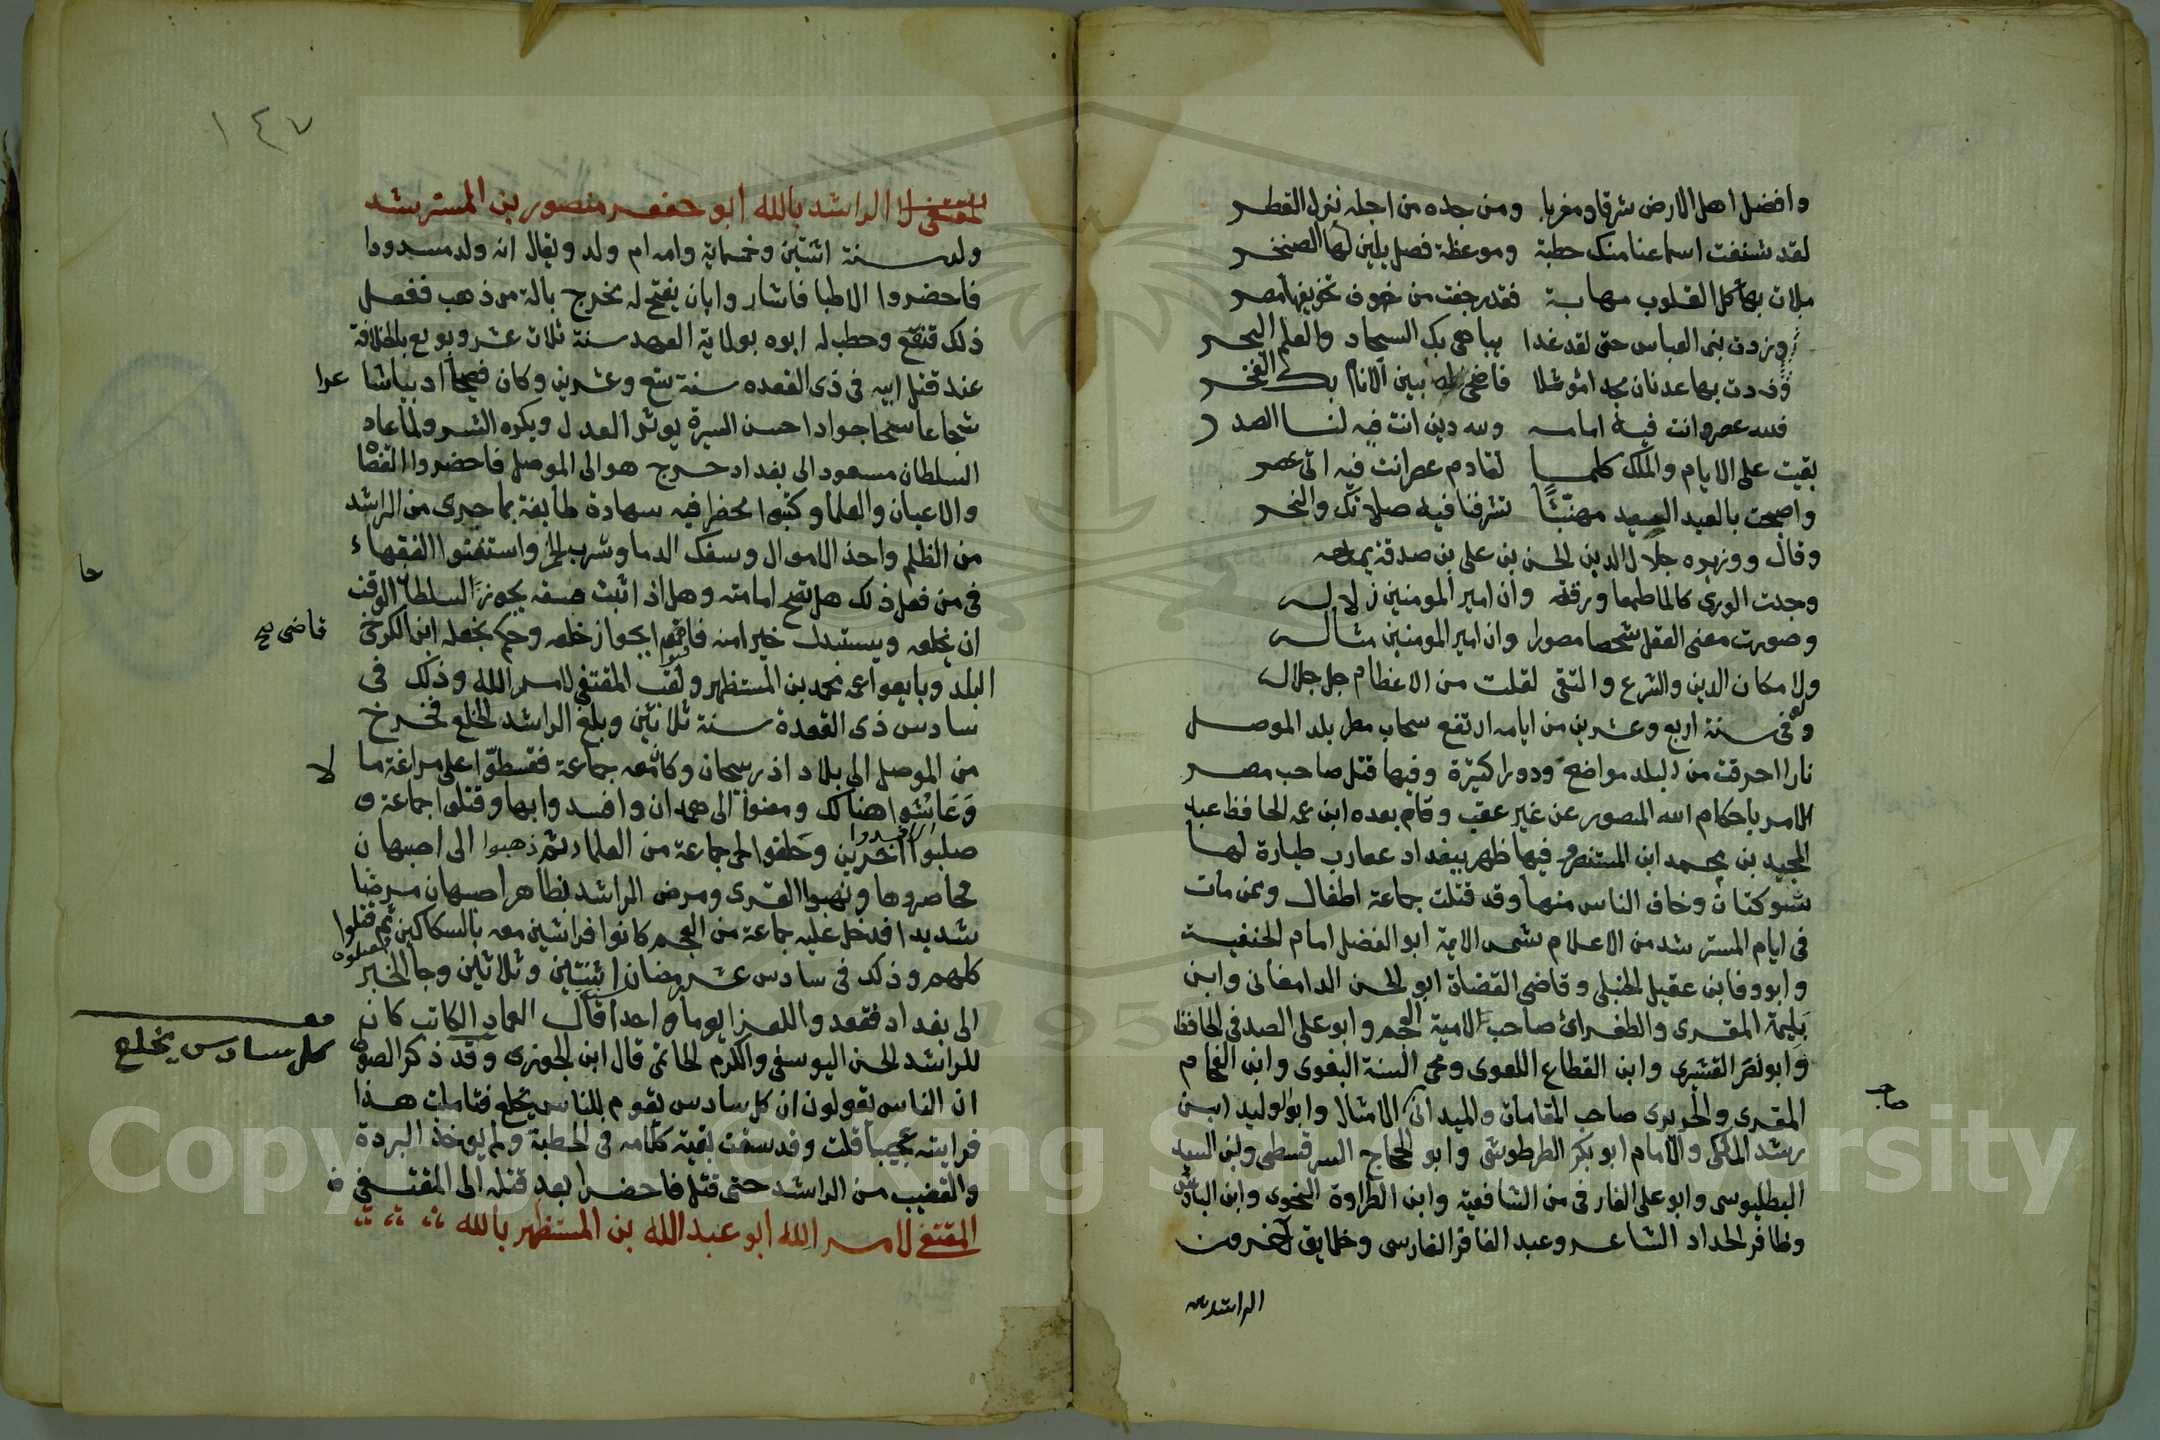 وافضل اهل الارض شرقا ومغربا ومن جده من اجله نزل القطر
لقد شنفت اسماعنا منك خطبة وموعظة فصل يلين لها الصخر
ملات بها كل القلوب مهابة فقد رجفت من خوف تخويفها مصر
وزدت بنى العباس حتى لقد غدا يباهى بك السجاد والعلم البحر
وزدت بها عدنان مجدا مؤثلا فاضحى بين الانام بك الفخر
فلله عصر انت فيه امامه ولله دين انت فيه لنا الصدر
بقيت على الايام والملك كلما تقادم عصر انت فيه اتى عصر
واصبحت بالعيد السعيد مهنئا تشرفنا فيه صلاتك والنحر
وقال ووزيره جلال الدين الحسن بن على بن صدقة يمدحه
وجدت الورى كالماء طعما ورقة وان امير المومنين زلاله
وصورت معنى العقل شخصا مصورا وان امير المومنين مثاله
ولولا مكان الدين والشرع والتقى لقلت من الاعظام جل جلاله
وفى سنة اربع وعشرين من ايامه ارتفع سحاب مطر بلد الموصل
نارا احرقت من البلد مواضع ودورا كثيرة وفيها قتل صاحب مصر
الامر باحكام الله المنصور عن غير عقب وقام بعده ابن عمه الحافظ عبد
المجيد بن محمد ابن المستنصر وفيها ظهر ببغداد عقارب طيارة لها
شوكتان وخاف الناس منها وقد قتلت جماعة اطفال وممن مات
فى ايام المسترشد من الاعلام شمس الايمة ابو الفضل امام الحنفية
وابو وفا بن عقيل الحنبلى وقاضى القضاة ابو الحسن الدامغانى وابن
بليمة المقرى والطغرائ صاحب لامية العجم وابو على الصدفى الحافظ
وابو نصر القشيرى وابن القطاع اللغوى ومحي السنة البغوى وابن الفحام
المقرى والحريرى صاحب المقامات والميدانى الامثال وابو الوليد ابن
صاحب
رشد المالكى والامام ابو بكر الطرطوشى وابو الحجاج السرقسطى وابن السيد
البطليوسى وابو على الفارقى من الشافعية وابن الطراوة النحوى وابن الباذش
وظافر الحداد الشاعر وعبد الغافر الفارسى وخلايق آخرون
الراشد
١٤٧
الراشد بالله ابو جعفر منصور بن المسترشد
ولد سنة اثنتين وخمسماية وامه ام ولد ويقال انه ولد مسدودا
فاحضروا الاطبا فاشاروا بان يفتح له مخرج بالة من ذهب ففعل
ذلك فنفع وخطب له ابوه بولاية العهد سنة ثلاث عشر وبويع بالخلافة
عند قتل ابيه فى ذى القعده سنة تسع وعشرين وكان فصيحا اديبا شا عرا
شجاعا سمحا جوادا حسن السيرة يوثر العدل ويكره الشر ولما عاد
السلطان مسعود الى بغداد خرج هو الى الموصل فاحضروا القضاة
والاعيان والعلما وكتبوا محضرا فيه شهادة طايفة بما جرى من الراشد
من الظلم واخذ الاموال وسفك الدما وشرب الخمر واستفتوا الفقهاء
فى من فعل ذلك هل تصح امامته وهل اذا ثبت فسقه يجوز لسلطان الوقت
ان يخلعه ويستبدل خيرا منه فافتوا بجواز خلعه وحكم بخلعه ابن الكرخى قاضى
البلد وبايعوا عمه محمد بن المستظهر ولقب المقتفى لامر الله وذلك فى
سادس ذى القعدة سنة ثلاثين وبلغ الراشد الخلع فخرج
من الموصل الى بلاد اذربيجان وكان معه جماعة فقسطوا على مراغة ما لا
وعاثوا هناك ومضوا الى همدان وافسدوا بها وقتلوا جماعة و
صلبوا آخرين وحلقوا لحى جماعة من العلماء ثم ذهبوا الى اصبهان
فحاصروها ونهبوا القرى ومرض الراشد بظاهر اصبهان مرضا
شديدا فدخل عليه جماعة من العجم كانوا فراشين معه فقتلوه بالسكاكين ثم قتلوا
كلهم وذلك فى سادس عشر رمضان سنة اثنتين وثلاثين وجا الخبر
الى بغداد فقعدوا للعزا يوما واحدا قال العماد الكاتب كان
للراشد الحسن اليوسفى والكرم الحاتمى قال ابن الجوزى وقد ذكر الصولى
كل سادس يخلع
ان الناس يقولون ان كل سادس يقوم للناس يخلع فتاملت هذا
فرايته عجبا قلت وقد سقت بقية كلامه فى الخطبة ولم يوخذ البردة
والقضيب من الراشد حتى قتل فاحضرا بعد قتله الى المقتفى
المقتفى لامر الله ابو عبد الله بن المستظهر بالله
Copyright © King Saud University
1957